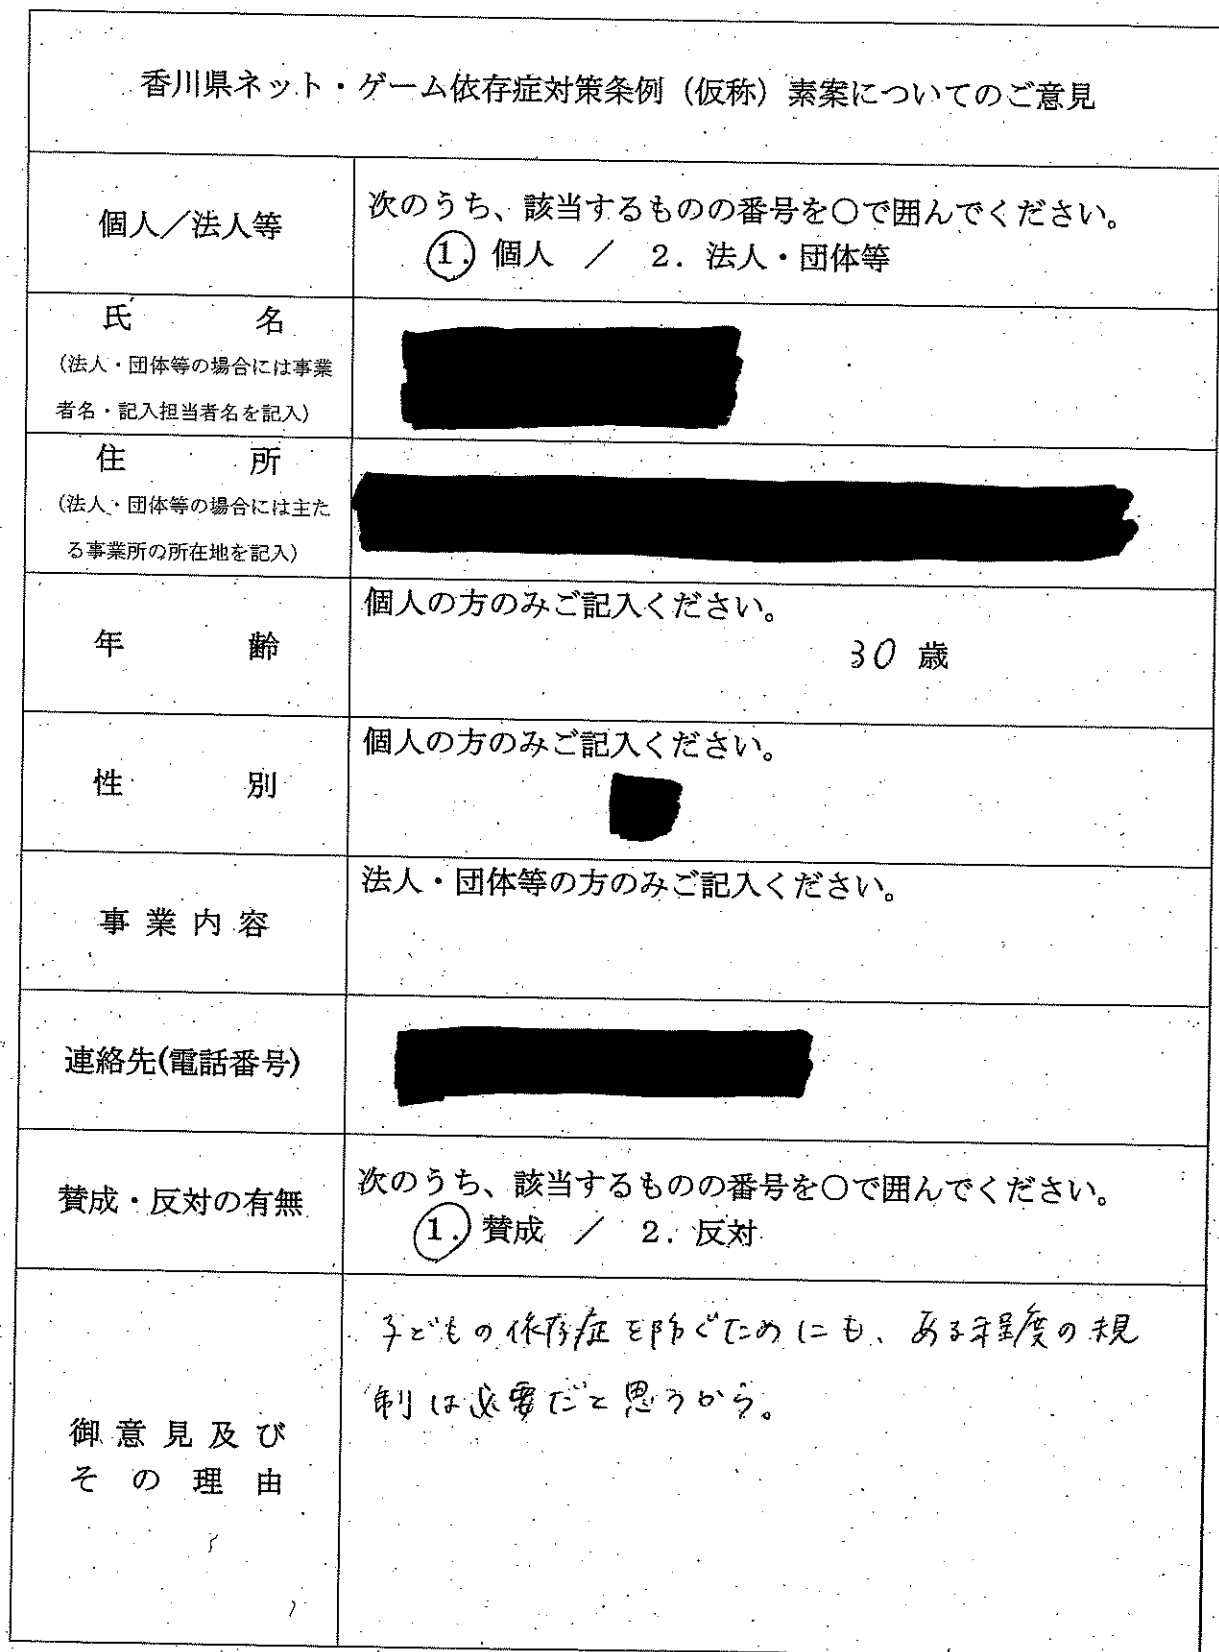 香川県ネット・ゲーム依存症対策条例（仮称）素案についてのご意見
個人／法人等
次のうち、該当するものの番号を○で囲んでください。
1. 個人 ／ 2. 法人・団体等
氏名
（法人・団体等の場合には事業
者名・記入担当者名を記入）
住所
（法人・団体等の場合には主た
る事業所の所在地を記入）
年齢
個人の方のみご記入ください。
30 歳
性別
個人の方のみご記入ください。
事業内容
法人・団体等の方のみご記入ください。
連絡先(電話番号)
賛成・反対の有無
次のうち、該当するものの番号を○で囲んでください。
1. 賛成 ／ 2. 反対
御意見及び
その理由
子どもの依存症を防ぐためにも、ある程度の規
制は必要だと思うから。